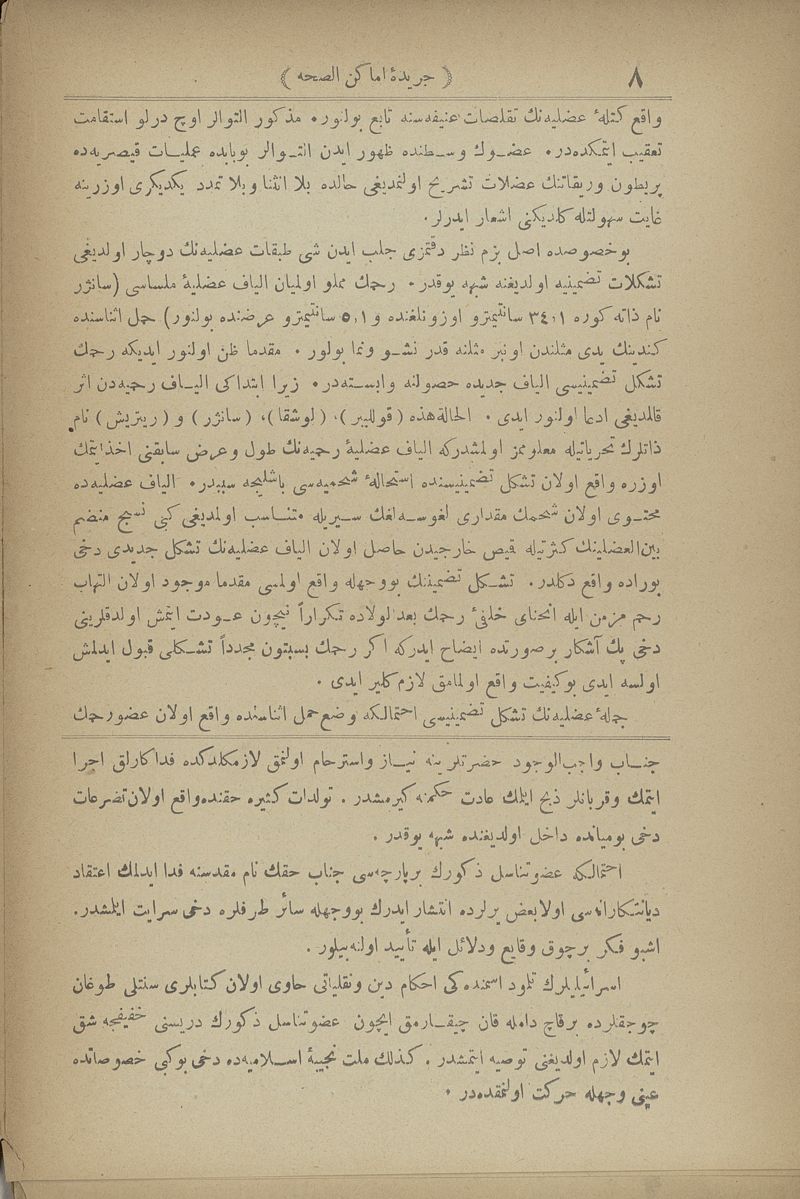 ٨
﴿ جریدهٔ اماکن الصحه ﴾
واقع کتلهٔ عضلیه‌نك تقلصات عنیفه‌سنه تابع بولنور . مذکور التوالر اوچ درلو استقامت
تعقیب ایتمکده‌در . عضوك وسطنده ظهور ایدن التوالر بوبابده عملیات قیصریه‌ده
پریطون وریقاتنك عضلات تشریح اولندیغی حالده بلا انثنا وبلا تمدد یکدیکری اوزرینه
غایت سهولتله کلدیکنی اشعار ایدرلر .
بوخصوصده اصل بزم نظر دقتمزی جلب ایدن شی طبقات عضلیه‌نك دوچار اولدیغی
تشکلات تضمینیه اولدیغنه شبهه یوقدر . رحمك مملو اولمیان الیاف عضلیهٔ ملساسی (سانژر
نام ذاته کوره ٣٤،١ سانتیمترو اوزونلغنده و ٥،١ سانتیمترو عرضنده بولنور) حمل اثناسنده
کندینك یدی مثلندن اونبر مثلنه قدر نشو ونما بولور . مقدما ظن اولنور ایدیکه رحمك
تشکل تضمینیسی الیاف جدیده حصولنه وابسته‌در . زیرا ابتداکی الیاف رحمیه‌دن اثر
قالمدیغی ادعا اولنور ایدی . الحالة هذه (قوللیر)، (لوشقا)، (سانژر) و (ریتریش) نام
ذاتلرك تحریاتیله معلومز اولمشدرکه الیاف عضلیهٔ رحمیه‌نك طول وعرض سابقنی اخذ ایتمك
اوزره واقع اولان تشکل تضمینیسنده استحالهٔ شحمیه‌سی باشلیجه سببدر . الیاف عضلیه‌ده
محتوی اولان شحمك مقداری لغوسه‌لغك سیریله متناسب اولدیغی کبی نسج منضم
بین‌العضلینك کثرتیله قیص خارجیدن حاصل اولان الیاف عضلیه‌نك تشکل جدیدی دخی
بوراده واقع دکلدر . تشکل تضمینك بووجهله واقع اولمسی مقدما موجود اولان التهاب
رحم مزمن ایله انحنای خلفیٔ رحمك بعد لولاده تکراراً نیچون عودت ایتمش اولدقلرینی
دخی پك آشکار برصورتده ایضاح ایدرکه اکر رحمك بسبتون مجدداً تشکلی قبول ایدلمش
اولسه ایدی بوکیفیت واقع اولمامق لازم کلیر ایدی .
جملهٔ عضلیه‌نك تشکل تضمینیسی احتمالکه وضع حمل اثناسنده واقع اولان عضورحمك
جناب واجب‌الوجود حضرتلرینه نیاز واسترحام اولنمق لازمکلدکده فداکارلق اجرا
ایتمك وقربانلر ذبح ایلمك عادت حکمنه کیرمشدر . تولدات کثیره حقنده واقع اولان تضرعات
دخی بومیانده داخل اولدیغنده شبهه یوقدر .
احتمالکه عضوتناسل ذکورك برپارچه‌سی جناب حقك نام مقدسنه فدا ایدلمك اعتقاد
دیانتکارانه‌سی اولا بعض یرلرده انتشار ایدرك بووجهله سائر طرفلره دخی سرایت ایلمشدر.
اشبو فکر برچوق وقایع ودلائل ایله تأیید اولنه‌بیلور .
اسرائیلیلرك تلمود اسمنده‌کی احکام دین ونقلیاتی حاوی اولان کتابلری سنتلی طوغان
چوجقلرده برقاچ دامله قان چیقارمق ایچون عضوتناسل ذکورك دریسنی خفیفجه شق
ایتمك لازم اولدیغنی توصیه ایتمشدر . کذلك ملت نجیبهٔ اسلامیه‌ده دخی بوکبی خصوصاتده
عینی وجهله حرکت اولنمقده‌در .